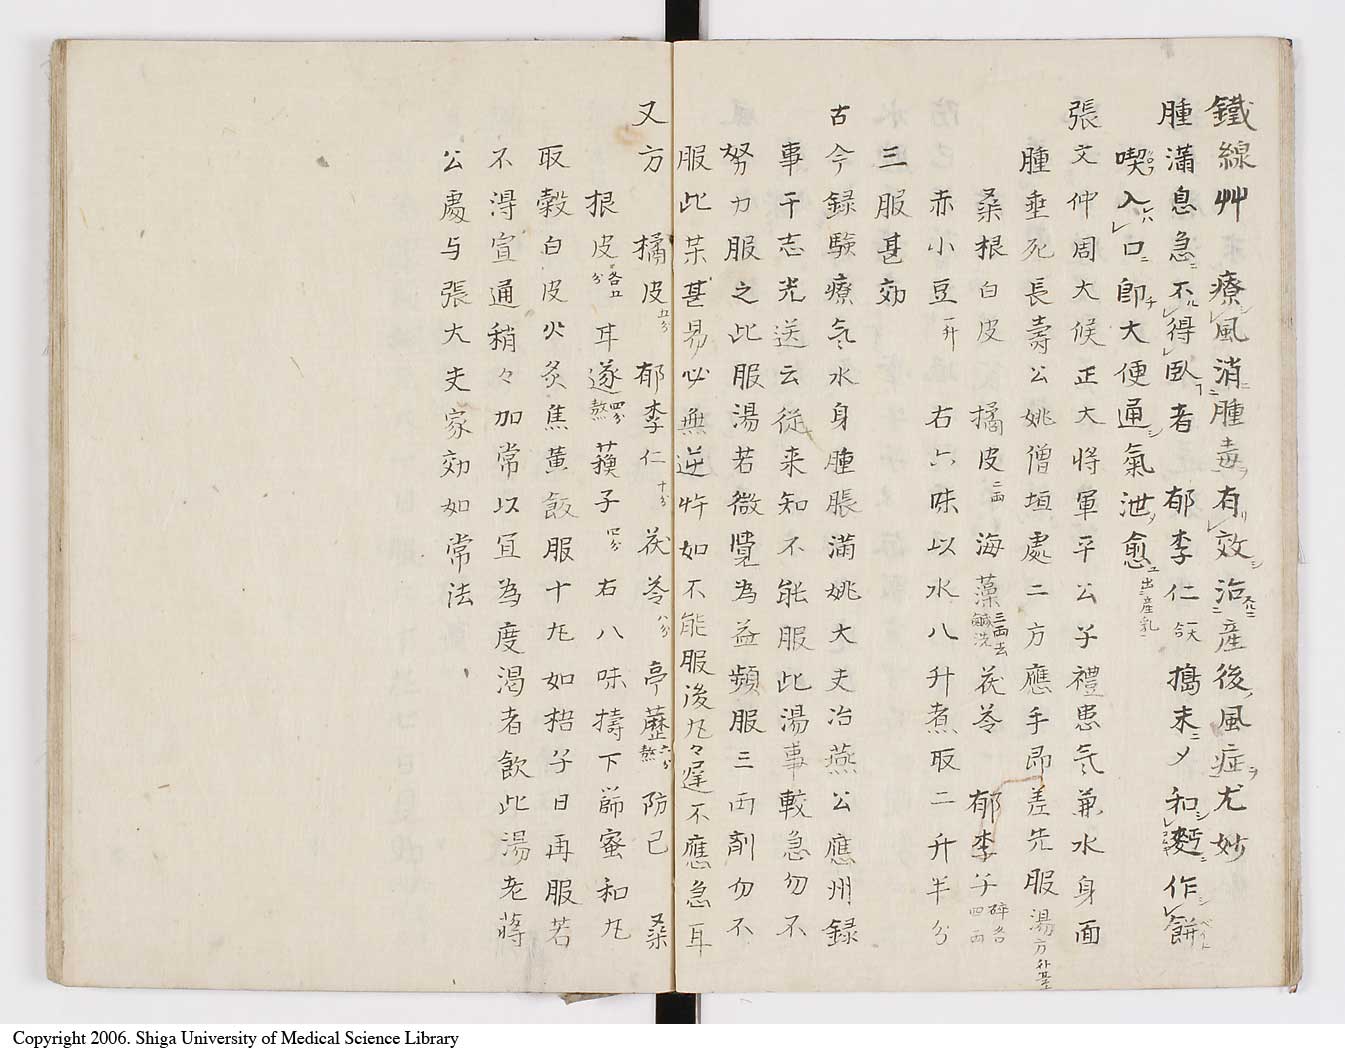 鐵線艸 療風消腫毒有效治産後風症尤妙
腫滿息急不得臥者 郁李仁一大合 搗末〆和麪作餅
喫入口卽大便通氣泄愈 出産乳
張文仲周大候正大将軍平公子禮患氣兼水身面
腫垂死長壽公姚僧垣處二方應手即差先服湯方
桑根白皮 橘皮二兩 海藻三兩去鹹洗 茯苓 郁李子碎各四兩
赤小豆一升 右六味以水八升煮取二升半分
三服甚効
古今録驗療気水身腫脹滿姚大夫治燕公應州録
事干志光送云従来知不能服此湯事較急勿不
努力服之此服湯若微覺為益頻服三両劑勿不
服此茱甚易必無逆忤如不能服後丸々遅不應急耳
又方 橘皮五分 郁李仁十分 茯苓八分 亭藶六分熬 防已 桑
根皮各五分 耳遂四分熬 蘓子四分 右八味擣下篩蜜和丸
取穀白皮火炙焦黄飯服十丸如梧子日再服若
不得宣通稍々加常以宜為度渇者飲此湯老蒋
公處与張大夫家効如常法
Copyright 2006. Shiga University of Medical Science Library